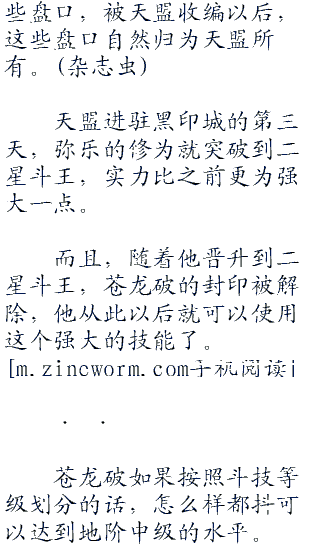 些盘口，被天盟收编以后，
这些盘口自然归为天盟所
有。(杂志虫)
天盟进驻黑印城的第三
天，弥乐的修为就突破到二
星斗王，实力比之前更为强
大一点。
而且，随着他晋升到二
星斗王，苍龙破的封印被解
除，他从此以后就可以使用
这个强大的技能了。
[m.zincworm.com手机阅读|
. .
苍龙破如果按照斗技等
级划分的话，怎么样都抖可
以达到地阶中级的水平。